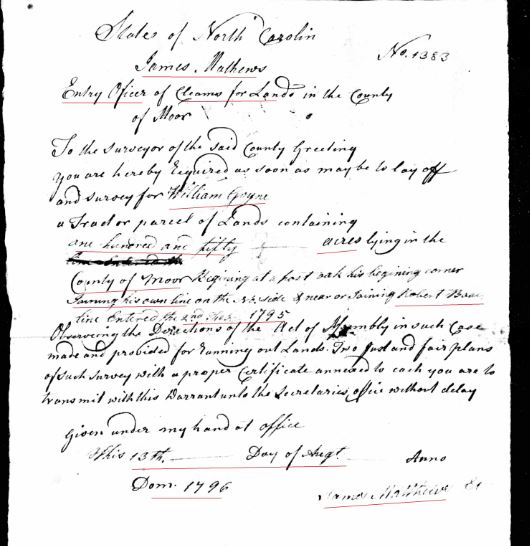 State of North Carolin
No. 1383
James Mathews
Entry Oficer of Cleams for Lands in the County
of Moor
To the surveyor of the said County Greeting
you are hereby Required as soon as may be to lay off
and survey for William Goyne
a Tract or parcel of Lands containing
one hundred and fifty acres lying in the
County of Moor Begining at a post oak his begining corner
Joining his own line on the side & near or Joining Robert
line Entered the 2nd 1795
Observing the Directions of the Act of Asembly in such Case
made and provided for Running out Lands. Two Just and fair plans
of such survey with a proper Certificate annexed to each you are to
transmit with this Warrant unto the Secretaries office without delay
Given under my hand at office
This 13th. Day of Augt. Anno
Dom. 1796
James Matthews